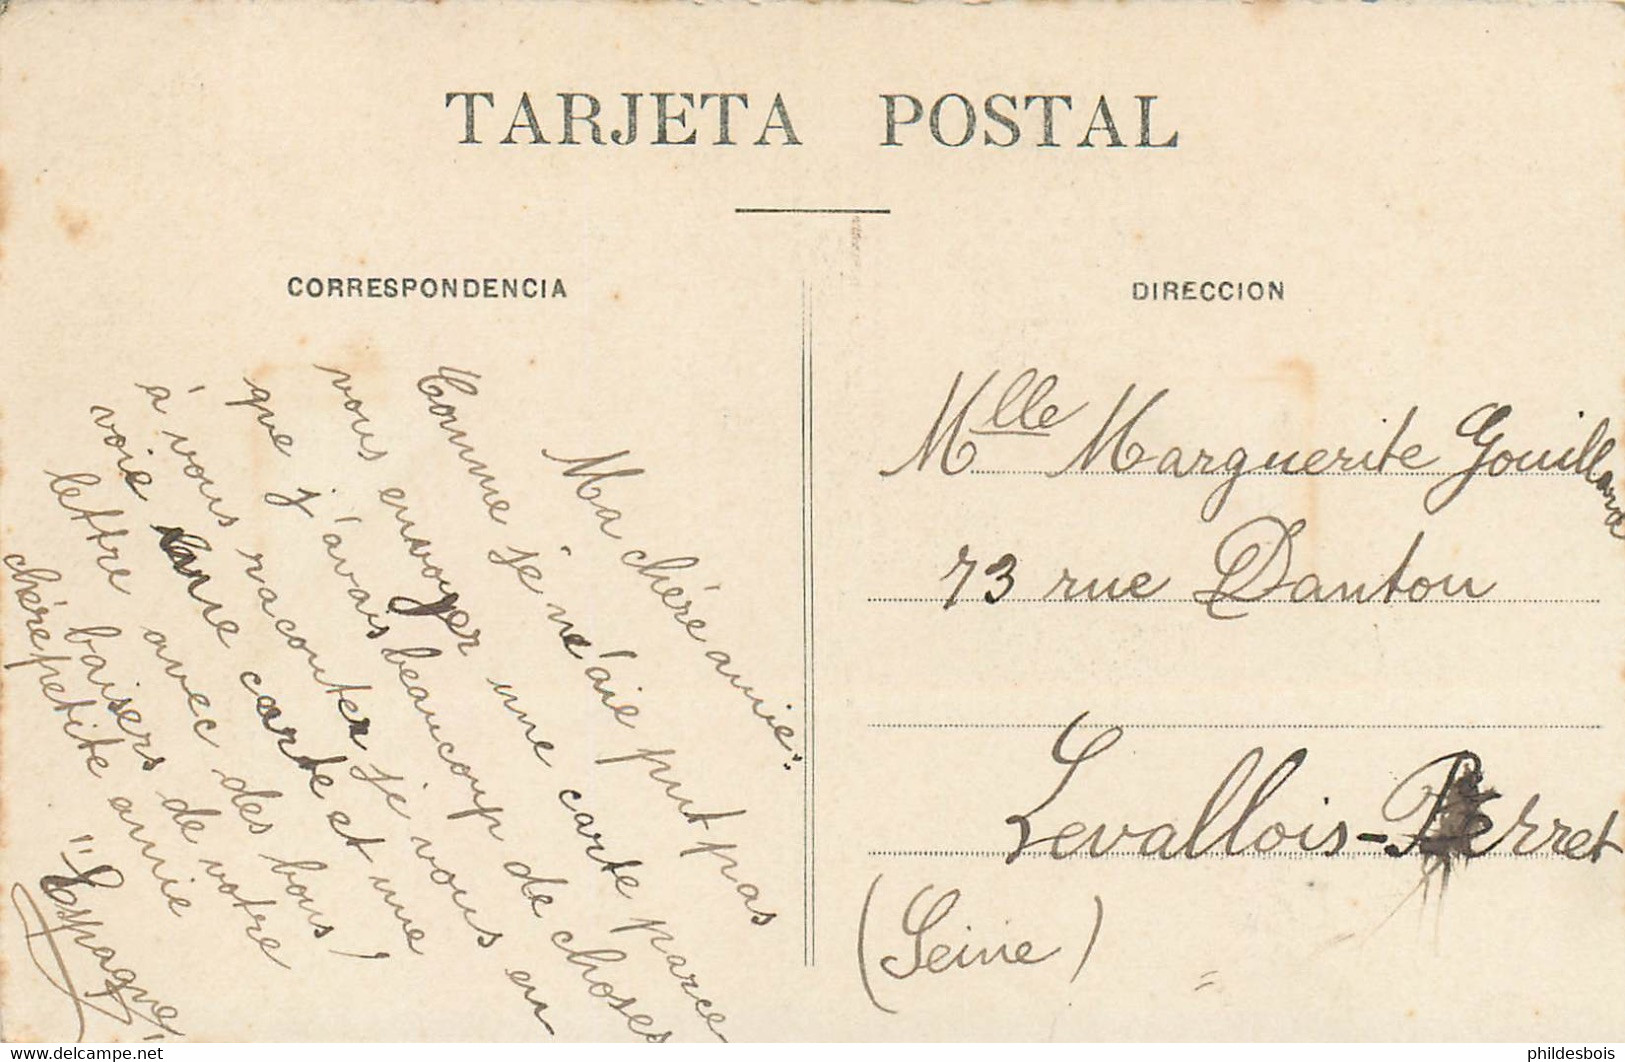 TARJETA POSTAL
CORRESPONDENCIA
Ma chére amie:
Comme je n'aie put pas
vous envoyer une carte parce
que j'avais beaucoup de choses
à vous raconter je vous en
voie une carte et une
lettre avec des bons!
baisers de votre
chére petite amie
"Espagne"
DIRECCION
Mlle Marguerite Gouillard
73 rue Danton
Levallois-Perret
(Seine)
phildesbois